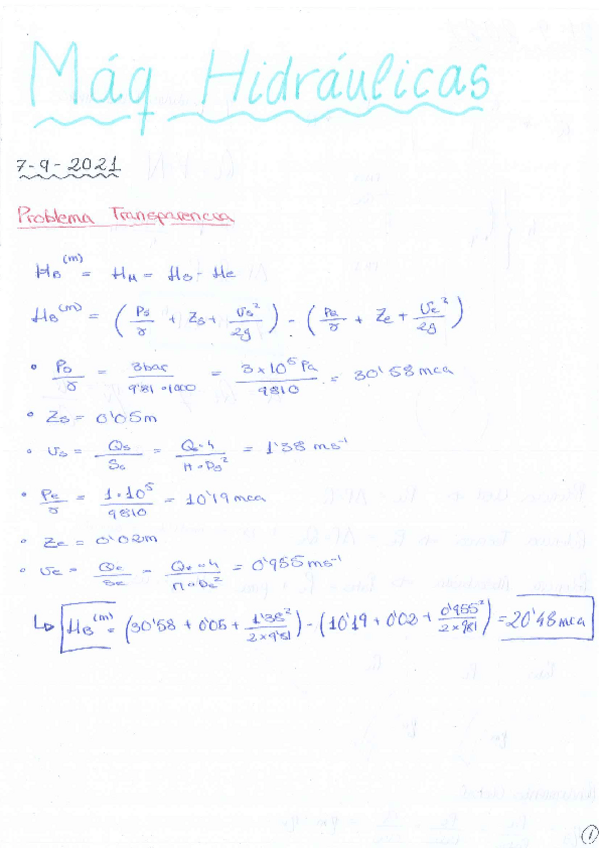 Máq Hidráulicas
7-9-2021
Problema Transparencia
H_B^(m) = H_M = H_s - H_e
H_B^(m) = (P_s/γ + Z_s + v_s²/2g) - (P_e/γ + Z_e + v_e²/2g)
• P_s/γ = 3bar/9'81·1000 = 3×10⁵Pa/9810 = 30'58 mca
• Z_s = 0'05m
• v_s = Q_s/S_s = Q_s·4/π·D_s² = 1'38 ms⁻¹
• P_e/γ = 1·10⁵/9810 = 10'19 mca
• Z_e = 0'02m
• v_e = Q_e/S_e = Q_e·4/π·D_e² = 0'955 ms⁻¹
↳ H_B^(m) = (30'58 + 0'05 + 1'38²/2×9'81) - (10'19 + 0'02 + 0'955²/2×9'81) = 20'48 mca
1